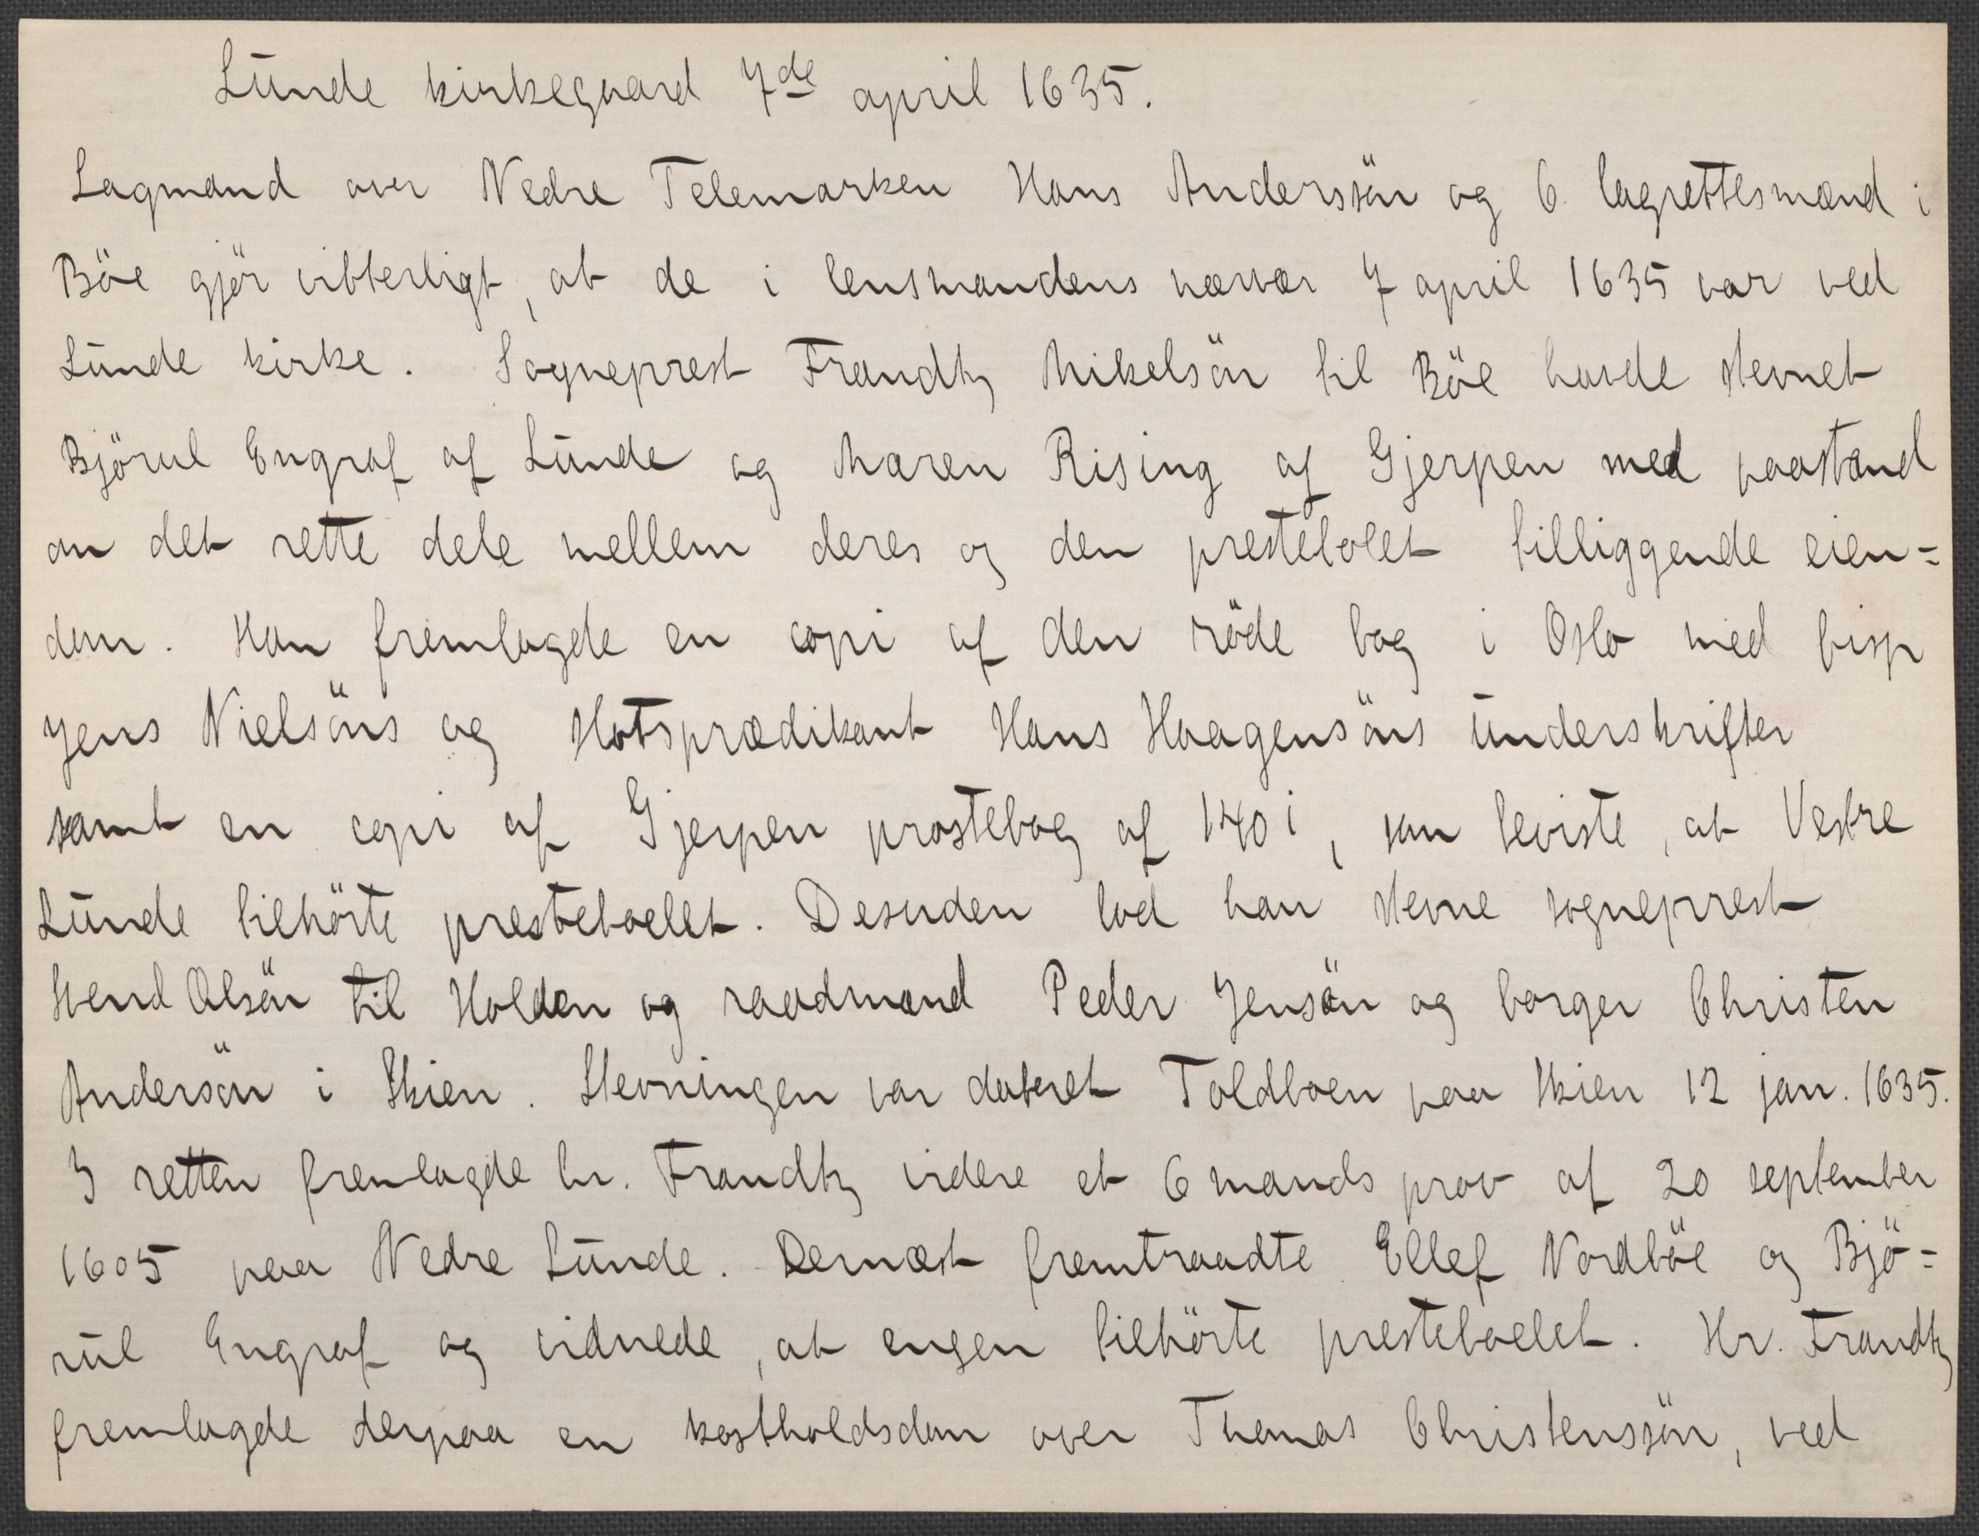 Lunde kirkegaard 7de april 1635.
Lagmand over Nedre Telemarken Hans Anderssön og 6 lagrettesmænd i
Böe gjör vitterligt, at de i lensmandens nærvær 7 april 1635 var ved
Lunde kirke. Sogneprest Frandtz Mikelsön til Böe havde stevnet
Björul Engraf af Lunde og Maren Rising af Gjerpen med paastand
om det rette dele mellem deres og den prestebolet tilliggende eien=
dom. Han fremlagde en copi af den röde bog i Oslo med bisp
Jens Nielsöns og Hofsprædikant Hans Haagensöns underskrifter
samt en copi af Gjerpen prostebog af 1401, som beviste, at Vestre
Lunde tilhörte presteboelet. Desuden lod han stevne sogneprest
Svend Olsön til Holden og raadmand Peder Jensön og borger Christen
Andersön i Skien. Stevningen var dateret Toldboen paa Skien 12 jan. 1635.
I retten fremlagde hr. Frandtz videre et 6 mands prov af 20 september
1605 paa Nedre Lunde. Dernæst fremtraadte Ellef Nordböe og Bjö=
rul Engraf og vidnede, at engen tilhörte presteboelet. Hr. Frandtz
fremlagde derpaa en kostholdsdom over Thomas Christenssön, ved